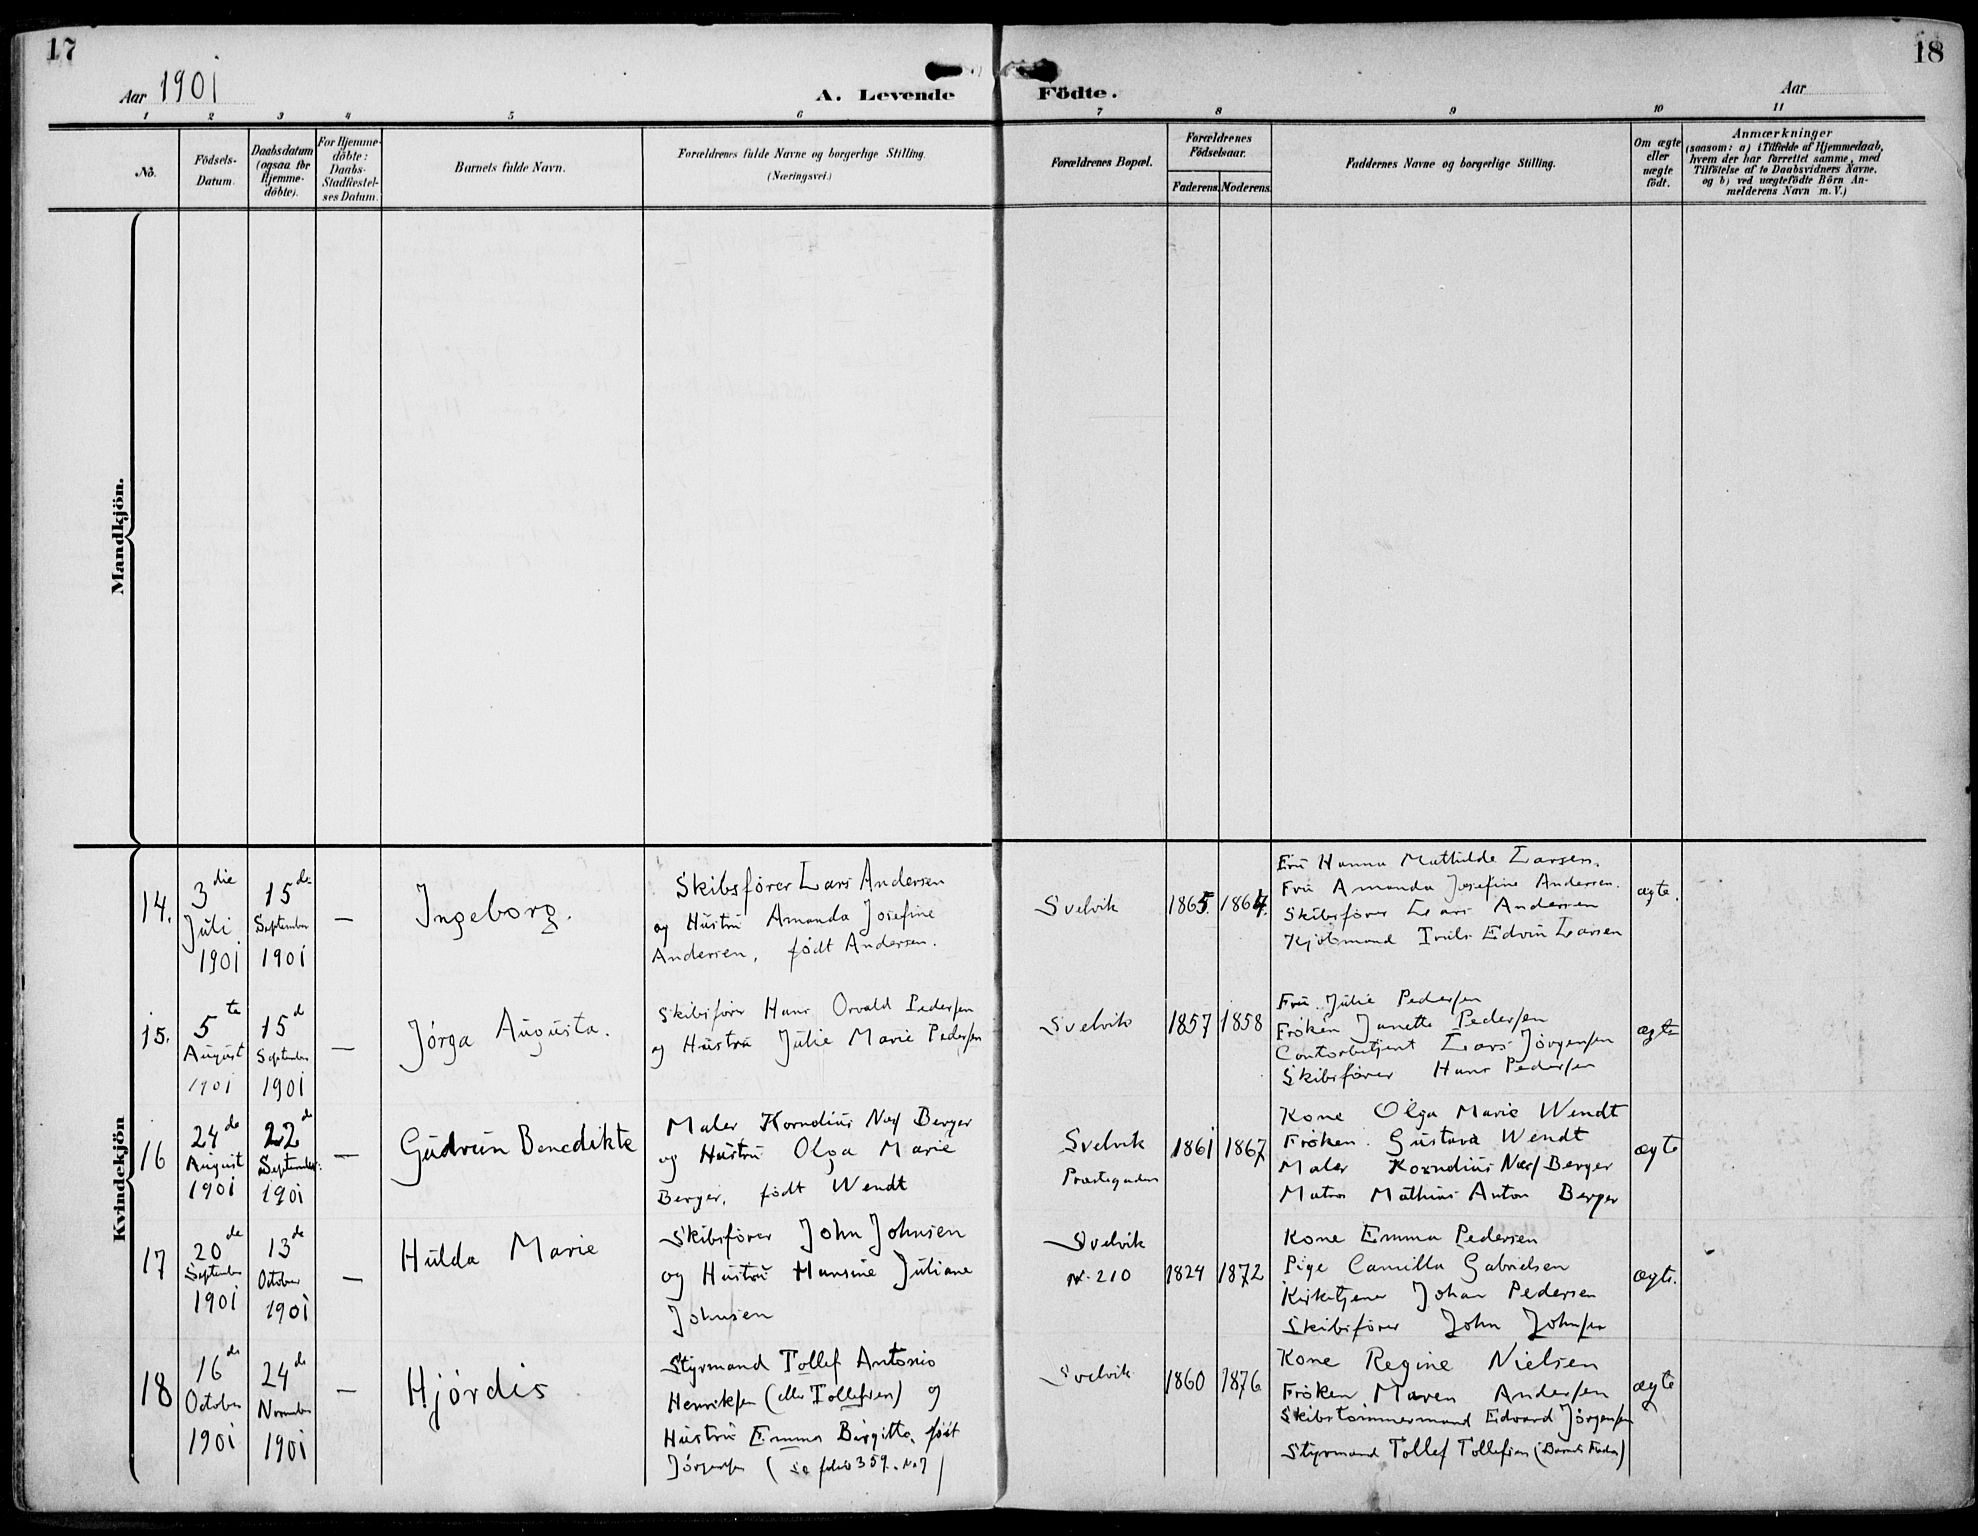 17
Aar 1901
A. Levende Födte.
Aar
18
1 2 3 4 5 6 7 8 9 10 11
No.
Födsels-
Datum.
Daabsdatum
(ogsaa for
Hjemme-
döbte).
For Hjemme-
döbte:
Daabs-
Stadfæstel-
ses Datum.
Barnets fulde Navn.
Forældrenes fulde Navne og borgerlige Stilling.
(Næringsvei.)
Forældrenes Bopæl.
Forældrenes
Födselsaar.
Faderens. Moderens.
Faddernes Navne og borgerlige Stilling.
Om ægte
eller
uægte
födt.
Anmærkninger
(saasom: a) i Tilfælde af Hjemmedaab,
hvem der har forrettet samme, med
Tilföielse af to Daabsvidners Navne.
og b) ved uægtefödte Börn An-
melderens Navn m. V.)
Mandkjön.
Kvindekjön
14.
3 die
Juli
1901
15 de
September
1901
—
Ingeborg.
Skibsfører Lars Andersen
og Hustru Amanda Josefine
Andersen, født Andersen.
Svelvik
1865. 1864.
Fru Hanna Mathilde Larsen.
Fru Amanda Josefine Andersen.
Skibsfører Lars Andersen
Kjøbmand Edvin Larsen
ægte.
15.
5 te
August
1901
15 d
September
1901
—
Jørga Augusta.
Skibsfører Hans Osvald Pedersen
og Hustru Julie Marie Pedersen
Svelvik
1857 1858
Fru Julie Pedersen
Frøken Janette Pedersen
Contorbetjent Lars Jørgensen
Skibsfører Hans Pedersen
ægte
16
24 de
August
1901
22 de
September
1901
—
Gudrun Benedikte
Maler Korndius Næs Berger
og Hustru Olga Marie
Berger, født Wendt
Svelvik
Præstegaden
1861 1867
Kone Olga Marie Wendt
Frøken Gustava Wendt
Maler Korndius Næs Berger
Matros Mathias Anton Berger
ægte
17
20 de
September
1901
13 de
October
1901
—
Hulda Marie
Skibsfører John Johnsen
og Hustru Hansine Juliane
Johnsen
Svelvik
N. 210
1824 1872
Kone Emma Pedersen
Pige Camilla Gabrielsen
Kirketjener Johan Pedersen
Skibsfører John Johnsen
ægte.
18
16 de
October
1901
24 de
November
1901
—
Hjørdis
Styrmand Tollef Antonio
Henriksen (eller Tollefsen) og
Hustru Emma Birgitte, født
Jørgensen (se folio 359. No 7)
Svelvik
1860 1876
Kone Regine Nielsen
Frøken Maren Andersen
Skibstømmermand Edvard Jørgensen
Styrmand Tollef Tollefsen (Barnets Fader)
ægte